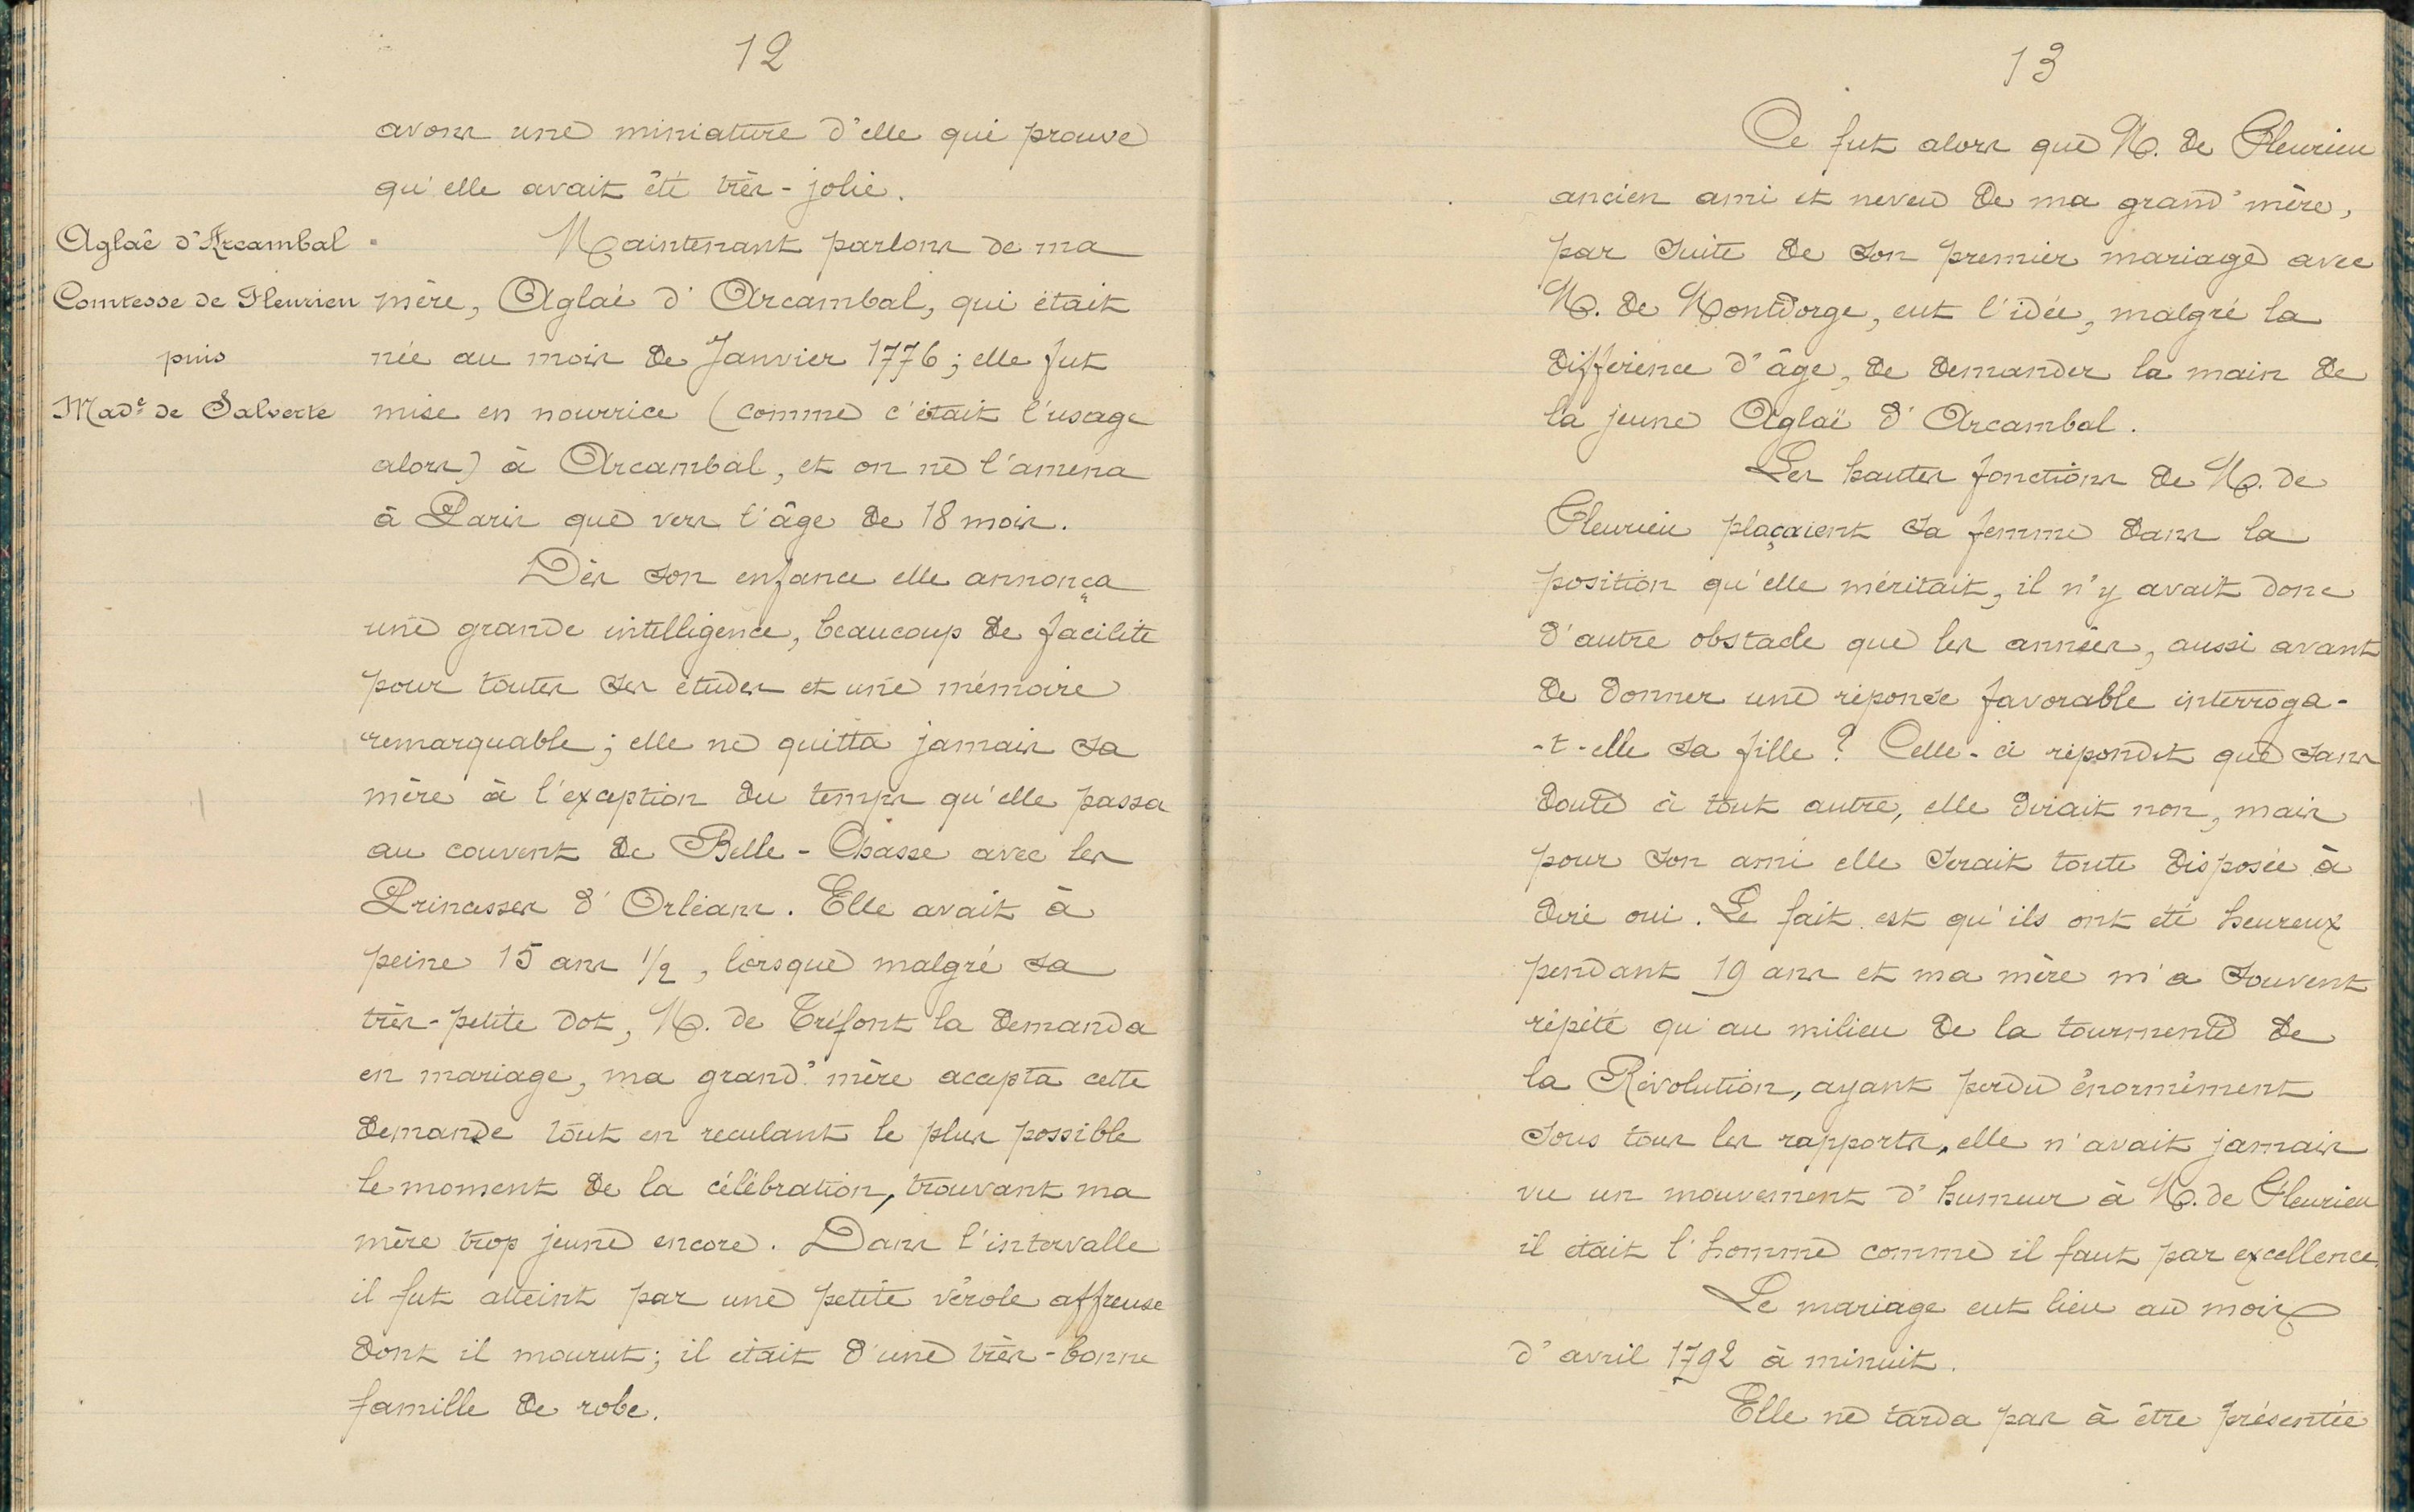 12
avons une miniature d'elle qui prouve
qu'elle avait été très-jolie.
Aglaé d'Arcambal
Comtesse de Fleurieu
puis
Made de Salverte
Maintenant parlons de ma
mère, Aglaé d'Arcambal, qui était
née au mois de Janvier 1776; elle fut
mise en nourrice (comme c'était l'usage
alors) à Arcambal, et on ne l'amena
à Paris que vers l'âge de 18 mois.
Dès son enfance elle annonça
une grande intelligence, beaucoup de facilité
pour toutes ses études et une mémoire
remarquable; elle ne quitta jamais sa
mère à l'exception du temps qu'elle passa
au couvent de Belle-Chasse avec les
Princesses d'Orléans. Elle avait à
peine 15 ans 1/2, lorsque malgré sa
très-petite dot, M. de Tréfont la demanda
en mariage, ma grand'mère accepta cette
demande tout en reculant le plus possible
le moment de la célébration, trouvant ma
mère trop jeune encore. Dans l'intervalle
il fut atteint par une petite vérole affreuse
dont il mourut; il était d'une très-bonne
famille de robe.
13
Ce fut alors que M. de Fleurieu
ancien ami et neveu de ma grand'mère,
par suite de son premier mariage avec
M. de Montdorge, eut l'idée, malgré la
différence d'âge, de demander la main de
la jeune Aglaë d'Arcambal.
Les hautes fonctions de M. de
Fleurieu plaçaient sa femme dans la
position qu'elle méritait, il n'y avait donc
d'autre obstacle que les années, aussi avant
de donner une réponse favorable interroga-
-t-elle sa fille? Celle-ci répondit que sans
doute à tout autre, elle dirait non, mais
pour son ami elle serait toute disposée à
dire oui. Le fait est qu'ils ont été heureux
pendant 19 ans et ma mère m'a souvent
répété qu'au milieu de la tourmente de
la Révolution, ayant perdu énormément
sous tous les rapports, elle n'avait jamais
vu un mouvement d'humeur à M. de Fleurieu
il était l'homme comme il faut par excellence.
Le mariage eut lieu au mois
d'avril 1792 à minuit.
Elle ne tarda pas à être présentée